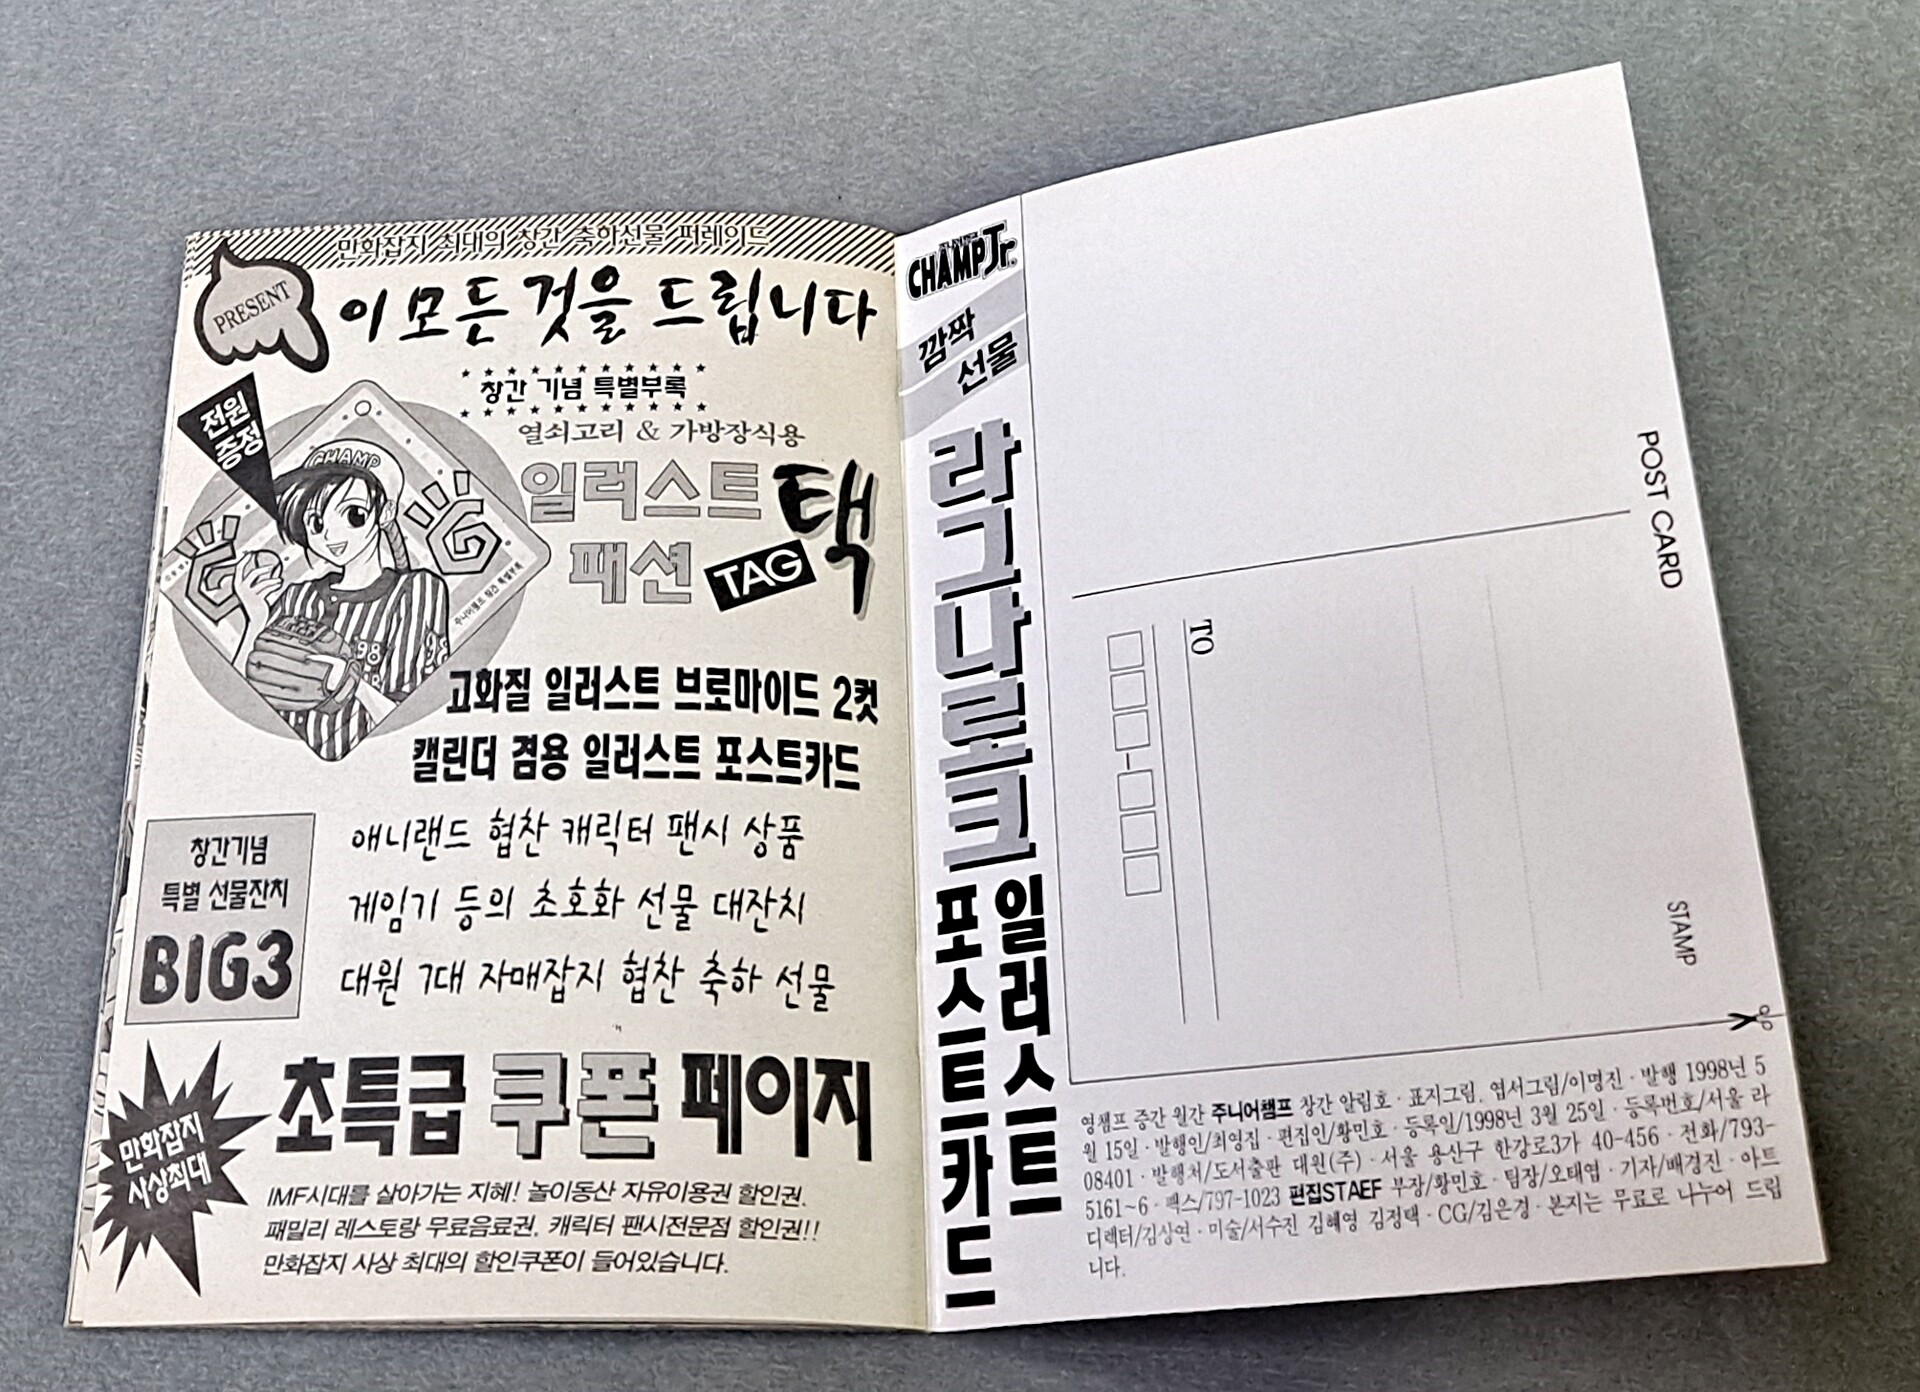 만화잡지 최대의 창간 축하선물 퍼레이드
PRESENT
이 모든 것을 드립니다
전원
증정
창간 기념 특별부록
열쇠고리 & 가방장식용
일러스트
패션
택
TAG
CHAMP
주니어챔프 창간 특별부록
98
고화질 일러스트 브로마이드 2컷
캘린더 겸용 일러스트 포스트카드
창간기념
특별 선물잔치
BIG3
애니랜드 협찬 캐릭터 팬시 상품
게임기 등의 초호화 선물 대잔치
대원 7대 자매잡지 협찬 축하 선물
만화잡지
사상최대
초특급 쿠폰 페이지
IMF시대를 살아가는 지혜! 놀이동산 자유이용권 할인권.
패밀리 레스토랑 무료음료권, 캐릭터 팬시전문점 할인권!!
만화잡지 사상 최대의 할인쿠폰이 들어있습니다.
CHAMP Jr.
깜짝
선물
라그나로크
일러스트
포스트카드
POST CARD
TO
STAMP
영챔프 증간 월간 주니어챔프 창간 알림호 · 표지그림, 엽서그림/이명진 · 발행 1998년 5
월 15일 · 발행인/최영집 · 편집인/황민호 · 등록일/1998년 3월 25일 · 등록번호/서울 라
08401 · 발행처/도서출판 대원(주) · 서울 용산구 한강로3가 40-456 · 전화/793-
5161~6 · 팩스/797-1023 편집STAEF 부장/황민호 · 팀장/오태엽 · 기자/배경진 · 아트
디렉터/김상연 · 미술/서수진 김혜영 김정택 · CG/김은경 · 본지는 무료로 나누어 드립
니다.